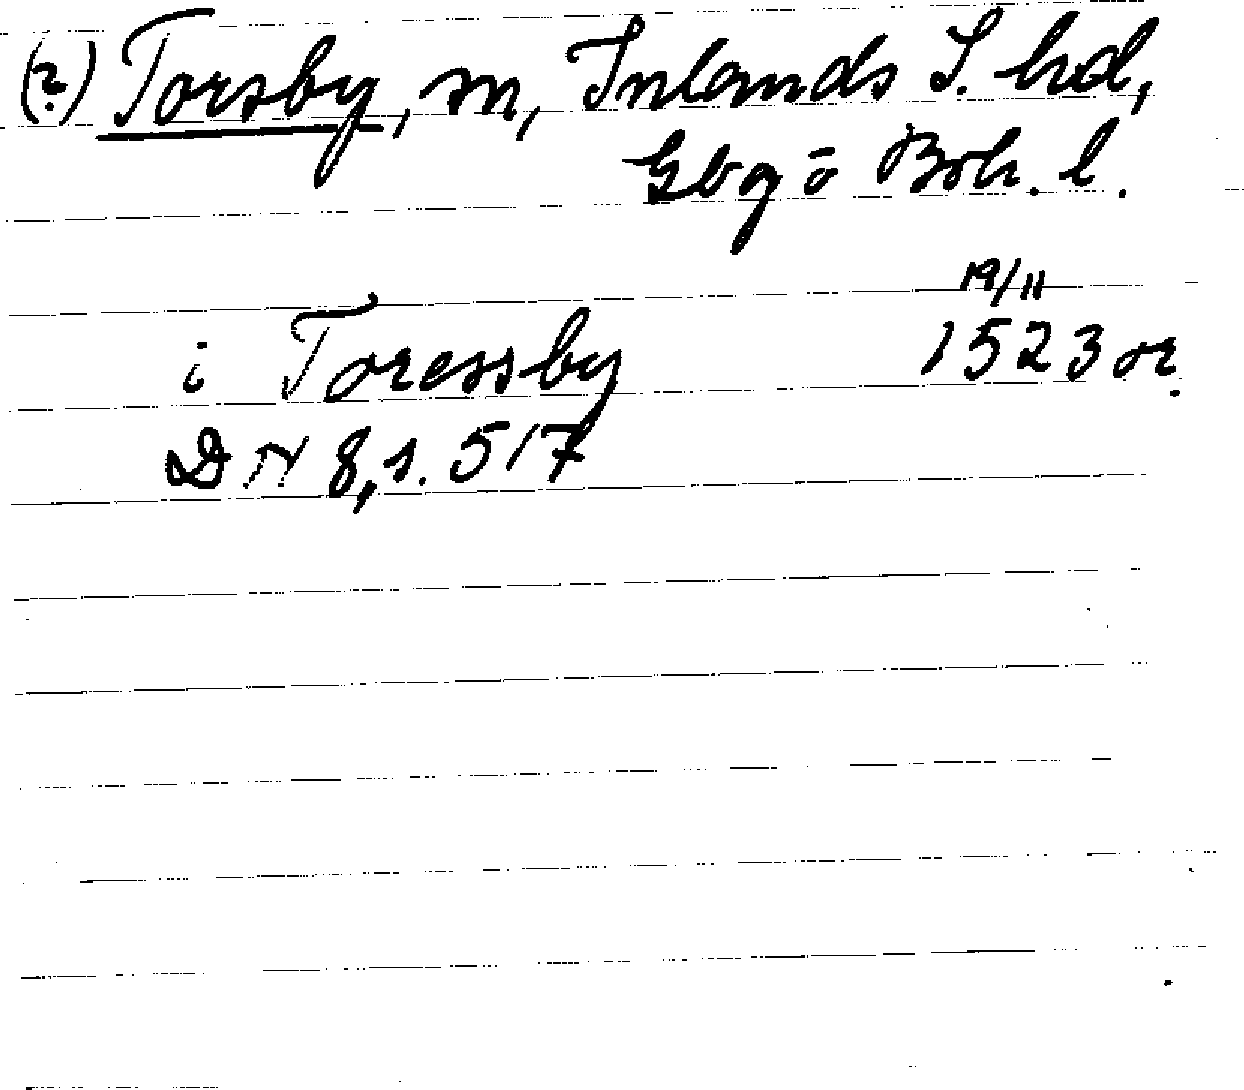 (?) Torsby, sn, Inlands S. hd,
Gbg o Boh. l.
19/11
i Toressby 1523 or.
DN 8, s. 517